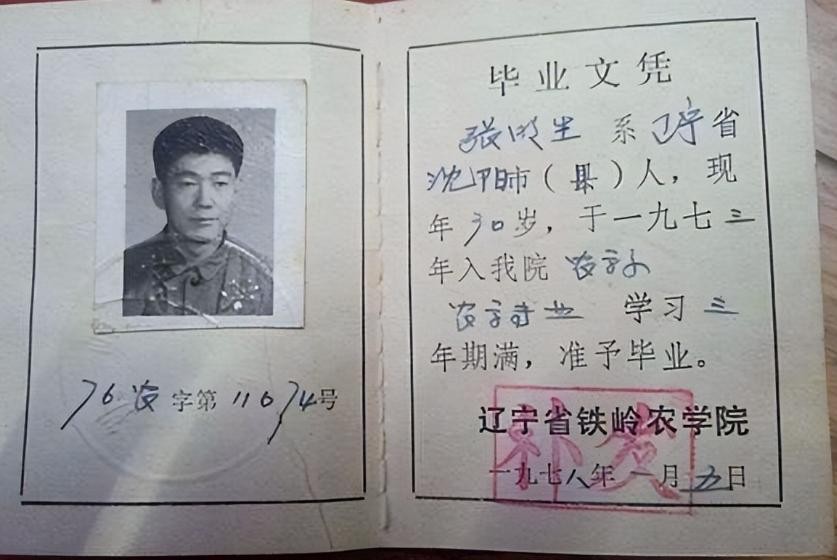 76农字第11074号
毕业文凭
张明生 系辽宁省
沈阳市（县）人，现
年30岁，于一九七三
年入我院农学系
农学专业 学习三
年期满，准予毕业。
辽宁省铁岭农学院
补发
一九七八年一月五日